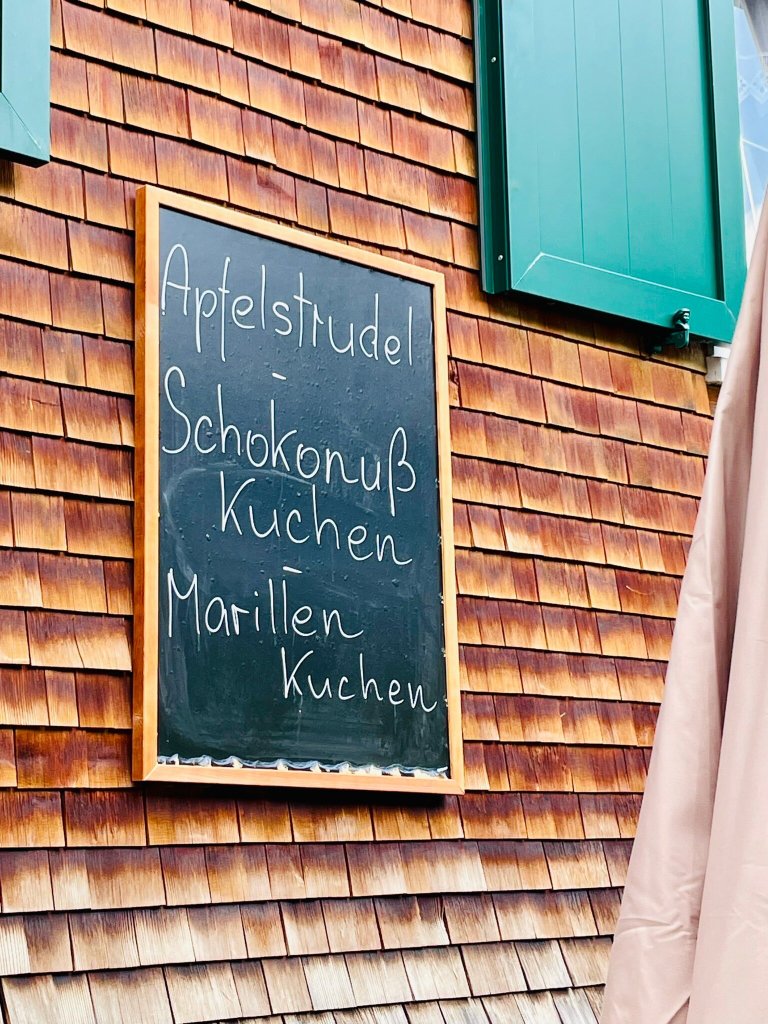 Apfelstrudel
-
Schokonuß
Kuchen
-
Marillen
Kuchen